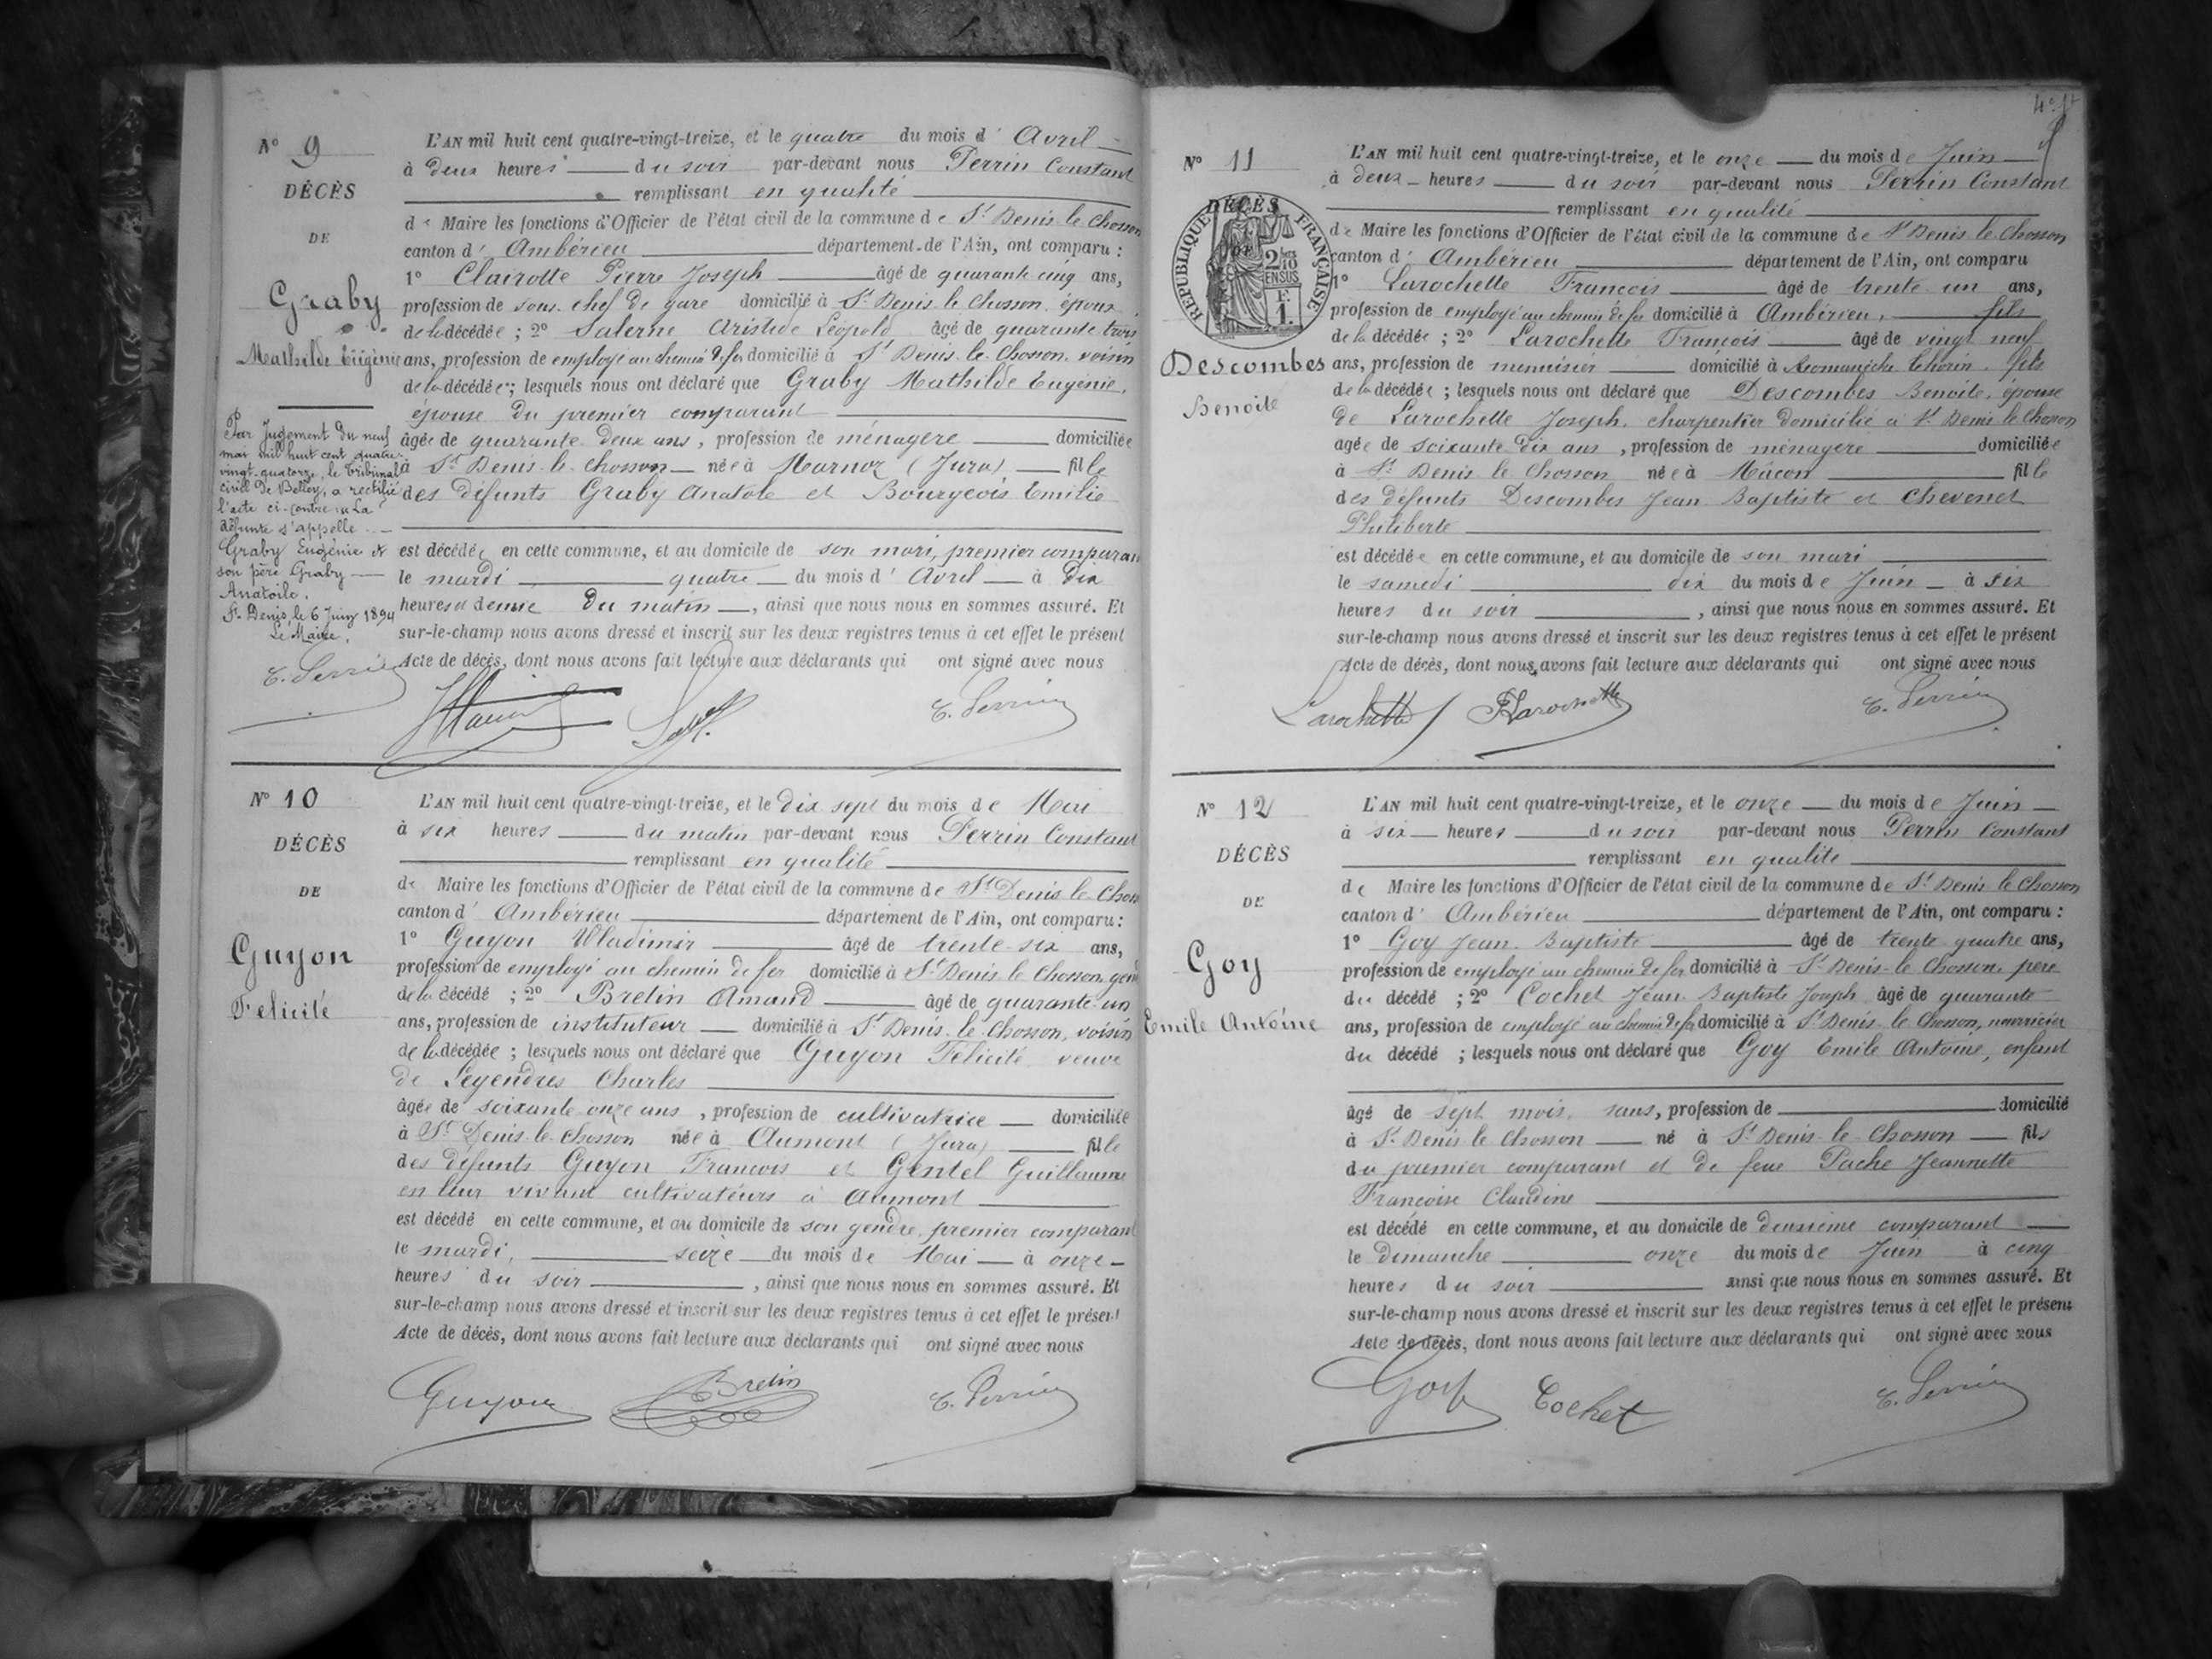 Nº 9
DÉCÈS
DE
Graby
Mathilde Eugénie
Par Jugement du neuf
mai mil huit cent quatre-
vingt-quatorze, le Tribunal
civil de Belley, a rectifié
l'acte ci-contre : La
défunte s'appelle
Graby Eugénie &
son père Graby
Anatoile.
St. Denis, le 6 Juin 1894
Le Maire,
C. Perrin
L'AN mil huit cent quatre-vingt-treize, et le quatre du mois d'Avril
à deux heures du soir par-devant nous Perrin Constant
remplissant en qualité
de Maire les fonctions d'Officier de l'état civil de la commune de St Denis-le-Chosson
canton d'Ambérieu département de l'Ain, ont comparu :
1º Clairotte Pierre Joseph âgé de quarante cinq ans,
profession de sous chef de gare domicilié à St Denis le Chosson, époux
de la décédée ; 2º Salerne Aristide Léopold âgé de quarante trois
ans, profession de employé au chemin de fer domicilié à St Denis-le-Chosson, voisin
de la décédée ; lesquels nous ont déclaré que Graby Mathilde Eugénie,
épouse du premier comparant
âgée de quarante deux ans, profession de ménagère domiciliée
à St Denis-le-Chosson née à Marnoz (Jura) fille
des défunts Graby Anatole et Bourgeois Emilie
est décédée en cette commune, et au domicile de son mari, premier comparant
le mardi quatre du mois d'Avril à dix
heures et demie du matin, ainsi que nous nous en sommes assuré. Et
sur-le-champ nous avons dressé et inscrit sur les deux registres tenus à cet effet le présent
Acte de décès, dont nous avons fait lecture aux déclarants qui ont signé avec nous
C. Perrin
Nº 10
DÉCÈS
DE
Guyon
Félicité
L'AN mil huit cent quatre-vingt-treize, et le dix sept du mois de Mai
à six heures du matin par-devant nous Perrin Constant
remplissant en qualité
de Maire les fonctions d'Officier de l'état civil de la commune de St Denis-le-Chosson
canton d'Ambérieu département de l'Ain, ont comparu :
1º Guyon Wladimir âgé de trente-six ans,
profession de employé au chemin de fer domicilié à St Denis-le-Chosson, gendre
de la décédé ; 2º Bretin Amand âgé de quarante-un
ans, profession de instituteur domicilié à St Denis-le-Chosson, voisin
de la décédée ; lesquels nous ont déclaré que Guyon Félicité veuve
de Legendres Charles
âgée de soixante onze ans, profession de cultivatrice domiciliée
à St Denis-le-Chosson née à Aumont (Jura) fille
des défunts Guyon François et Gentel Guillaume
en leur vivant cultivateurs à Aumont
est décédé en cette commune, et au domicile de son gendre, premier comparant
le mardi, seize du mois de Mai à onze
heures du soir, ainsi que nous nous en sommes assuré. Et
sur-le-champ nous avons dressé et inscrit sur les deux registres tenus à cet effet le présent
Acte de décès, dont nous avons fait lecture aux déclarants qui ont signé avec nous
Guyon Bretin C. Perrin
Nº 11
DÉCÈS
RÉPUBLIQUE FRANÇAISE
2/10 EN SUS
F. 1.
Descombes
Benoite
L'AN mil huit cent quatre-vingt-treize, et le onze du mois de Juin
à deux heures du soir par-devant nous Perrin Constant
remplissant en qualité
de Maire les fonctions d'Officier de l'état civil de la commune de St Denis-le-Chosson
canton d'Ambérieu département de l'Ain, ont comparu
1º Larochette François âgé de trente un ans,
profession de employé au chemin de fer domicilié à Ambérieu, fils
de la décédée ; 2º Larochette François âgé de vingt neuf
ans, profession de menuisier domicilié à Romanèche Thorin, fils
de la décédée ; lesquels nous ont déclaré que Descombes Benoite, épouse
de Larochette Joseph, charpentier domicilié à St Denis le Chosson
agée de soixante dix ans, profession de ménagère domiciliée
à St Denis le Chosson née à Mâcon fille
des défunts Descombes Jean Baptiste et Chevenet
Philiberte
est décédée en cette commune, et au domicile de son mari
le samedi dix du mois de Juin à six
heures du soir, ainsi que nous nous en sommes assuré. Et
sur-le-champ nous avons dressé et inscrit sur les deux registres tenus à cet effet le présent
Acte de décès, dont nous avons fait lecture aux déclarants qui ont signé avec nous
Larochette Larochette C. Perrin
Nº 12
DÉCÈS
DE
Goy
Emile Antoine
L'AN mil huit cent quatre-vingt-treize, et le onze du mois de Juin
à six heures du soir par-devant nous Perrin Constant
remplissant en qualité
de Maire les fonctions d'Officier de l'état civil de la commune de St Denis le Chosson
canton d'Ambérieu département de l'Ain, ont comparu :
1º Goy Jean-Baptiste âgé de trente quatre ans,
profession de employé au chemin de fer domicilié à St Denis-le-Chosson, père
du décédé ; 2º Cochet Jean-Baptiste Joseph âgé de quarante
ans, profession de employé au chemin de fer domicilié à St Denis le Chosson, nourricier
du décédé ; lesquels nous ont déclaré que Goy Emile Antoine, enfant
âgé de sept mois, sans, profession de domicilié
à St Denis le Chosson né à St Denis-le-Chosson fils
du premier comparant et de feue Pache Jeannette
Françoise Claudine
est décédé en cette commune, et au domicile de deuxième comparant
le dimanche onze du mois de Juin à cinq
heures du soir ainsi que nous nous en sommes assuré. Et
sur-le-champ nous avons dressé et inscrit sur les deux registres tenus à cet effet le présent
Acte de décès, dont nous avons fait lecture aux déclarants qui ont signé avec nous
Goy Cochet C. Perrin